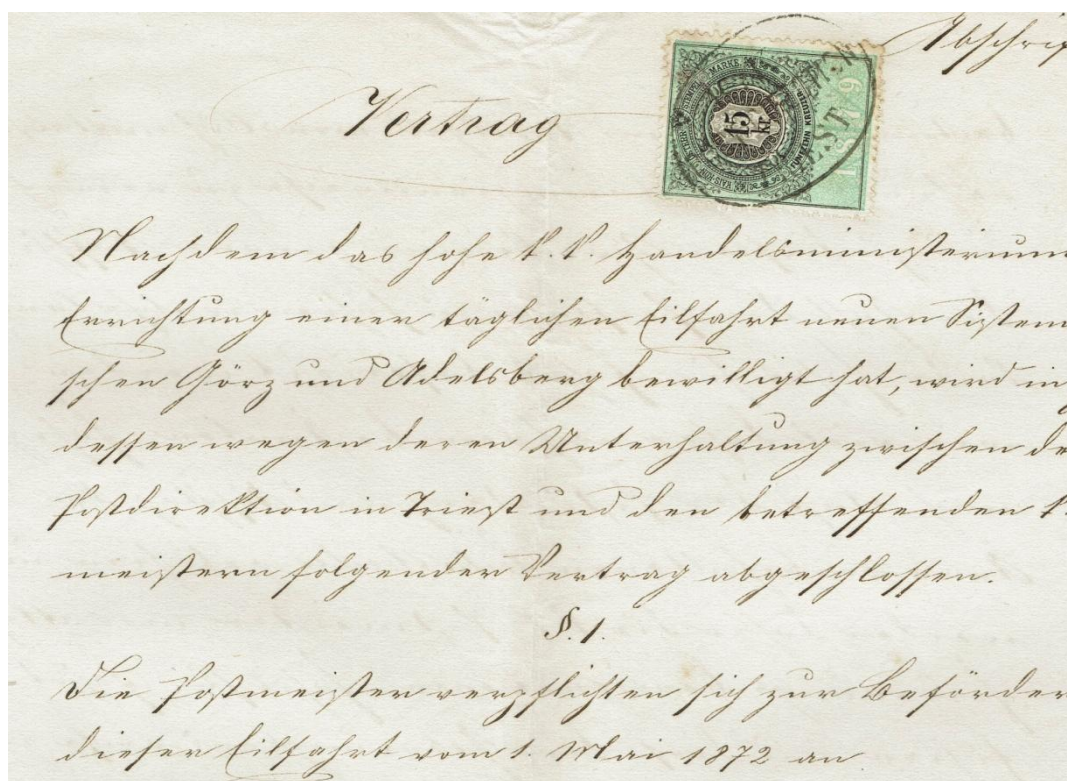 Abschrif
Vertrag
15
kr
Nachdem das hohe k. k. Handelsministerium
Errichtung einer täglichen Eilfahrt neuen Sistem
schen Görz und Adelsberg bewilligt hat, wird in
dessen wegen deren Unterhaltung zwischen de
Postdirektion in Triest und den betreffenden
meistern folgender Vertrag abgeschlossen.
§. 1.
Die Postmeister verpflichten sich zur Beförder
dieser Eilfahrt vom 1. Mai 1872 an